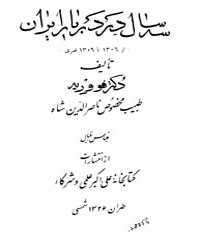 سه سال در دربار ایران
از ۱۳۰۶ تا ۱۳۰۹ قمری
تألیف
دکتر فووریه
طبیب مخصوص ناصرالدین شاه
از انتشارات
کتابخانهٔ علی اکبر علمی و شرکاء
طهران ۱۳۲۶ شمسی